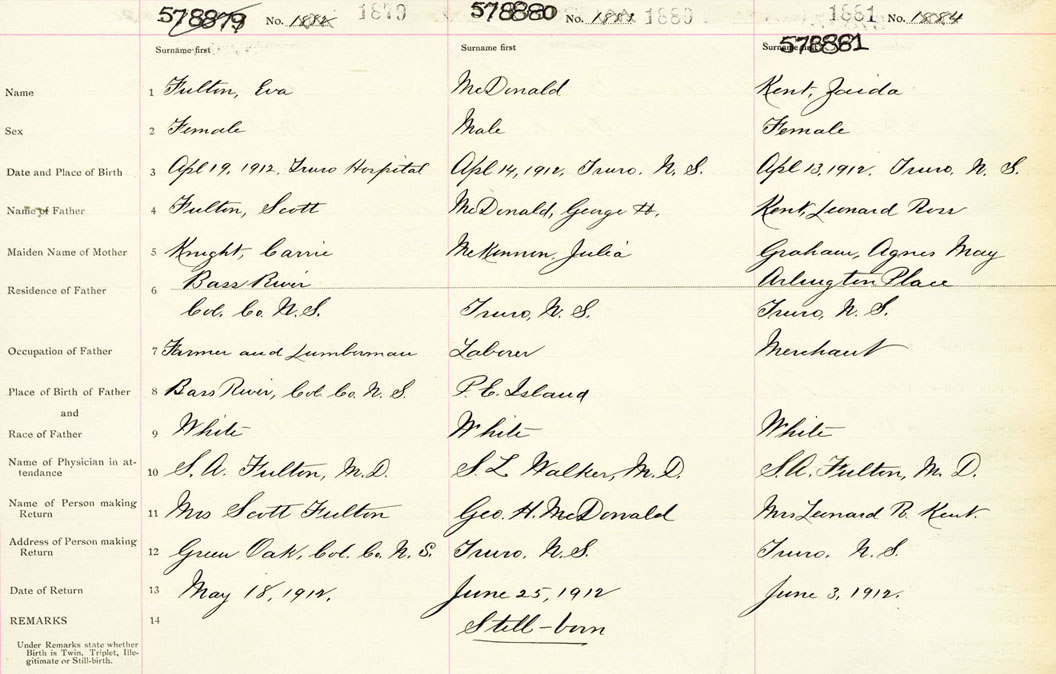 578879 No. 1879 578880 No. 1880 1881 No. 1884
Surname first Surname first Surname first 578881
Name 1 Fulton, Eva McDonald Kent, Zaida
Sex 2 Female Male Female
Date and Place of Birth 3 Apl 19, 1912. Truro Hospital Apl 14, 1912, Truro. N. S. Apl 13, 1912. Truro. N. S.
Name of Father 4 Fulton, Scott McDonald, George H. Kent, Leonard Ross
Maiden Name of Mother 5 Knight, Carrie McKinnon, Julia Graham, Agnes May
Bass River Arlington Place
Residence of Father 6
Col. Co. N.S. Truro, N. S. Truro, N. S.
Occupation of Father 7 Farmer and Lumberman Laborer Merchant
Place of Birth of Father 8 Bass River, Col. Co. N. S. P. E. Island
and
Race of Father 9 White White White
Name of Physician in at-
tendance 10 S. A. Fulton, M.D. S. L. Walker, M.D. S. A. Fulton, M. D.
Name of Person making
Return 11 Mrs Scott Fulton Geo. H. McDonald Mrs Leonard R. Kent.
Address of Person making
Return 12 Green Oak, Col. Co. N. S. Truro. N.S. Truro. N. S.
Date of Return 13 May 18, 1912. June 25, 1912 June 3, 1912.
REMARKS 14 Still-born
Under Remarks state whether
Birth is Twin, Triplet, Ille-
gitimate or Still-birth.